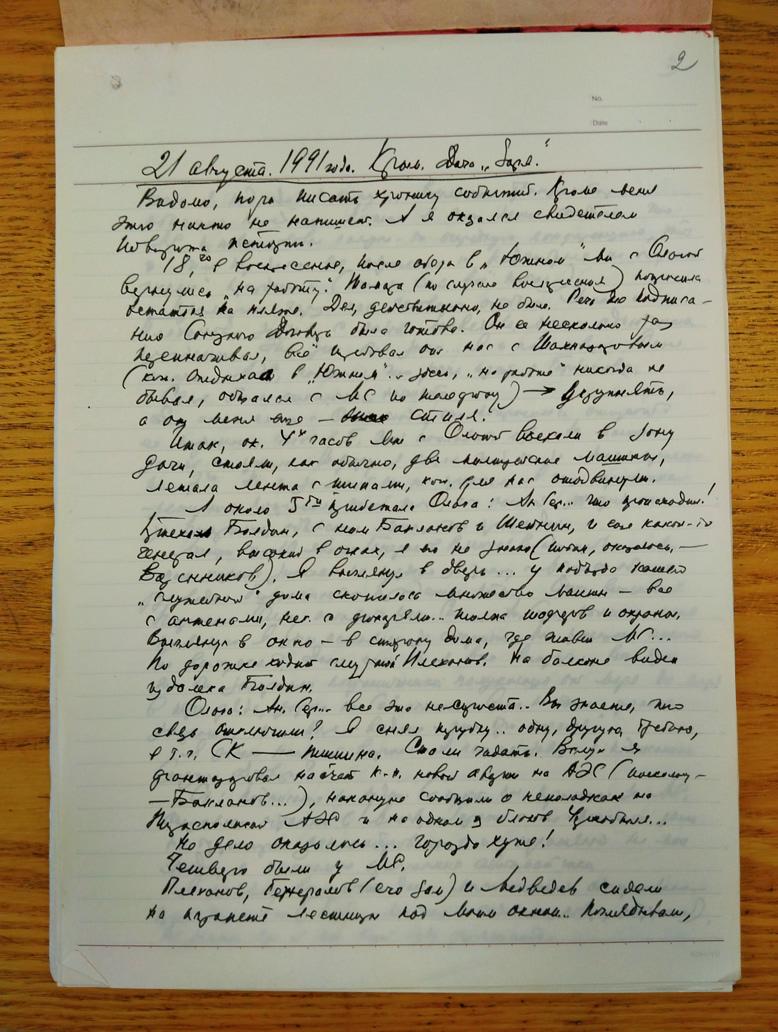 2
No.
Date
21 августа. 1991 года. Крым. Дача „Заря."
Видимо, пора писать хронику событий. Кроме меня
этого никто не напишет. А я оказался свидетелем
поворота истории.
18,го в воскресенье, после обеда в „Южном" мы с Ольгой
вернулись „на работу". Тамара (по случаю воскресенья) попросила
остаться на пляже. Дел, действительно, не было. Речь по подписа-
нию Союзного Договора была готова. Он ее несколько раз
переиначивал, всё требовал от нас с Шахназаровым
(кот. отдыхал в „Южном" и здесь, „на работе" никогда не
бывал, общался с МС по телефону) → уточнять,
а от меня еще – стиля.
Итак, ок. 4х часов мы с Ольгой въехали в зону
дачи, стояли, как обычно, две милицейские машины,
лежала лента с шипами, кот. для нас отодвинули.
А около 5ти прибегает Ольга: Ан. Сер... что происходит!
Приехал Болдин, с ним Бакланов и Шенин, и еще какой-то
генерал, высокий в очках, я его не знаю (потом, оказалось, –
Варенников). Я выглянул в дверь... у подъезда нашего
„служебного" дома скопилось множество машин – все
с антенами, нек. с фонарями... толпа шоферов и охраны.
Выглянул в окно – в сторону дома, где живет МС...
По дорожке ходит смурной Плеханов. На балконе виден
издалека Болдин.
Ольга: Ан. Сер... все это неспроста.. Вы знаете, что
связь отключили? Я снял трубку.. одну, другую, третью,
в т.ч. СК — тишина. Стали гадать. Вслух я
фантазировал насчет к.-н. новой аварии на АЭС (поскольку –
– Бакланов...), накануне сообщили о неполадках на
Тираспольской АЭС и на одном из блоков Чернобыля...
Но дело оказалось... гораздо хуже!
Четверо были у МС.
Плеханов, Генералов (его зам) и Медведев сидели
на парапете лестницы под моим окном.. поглядывали,